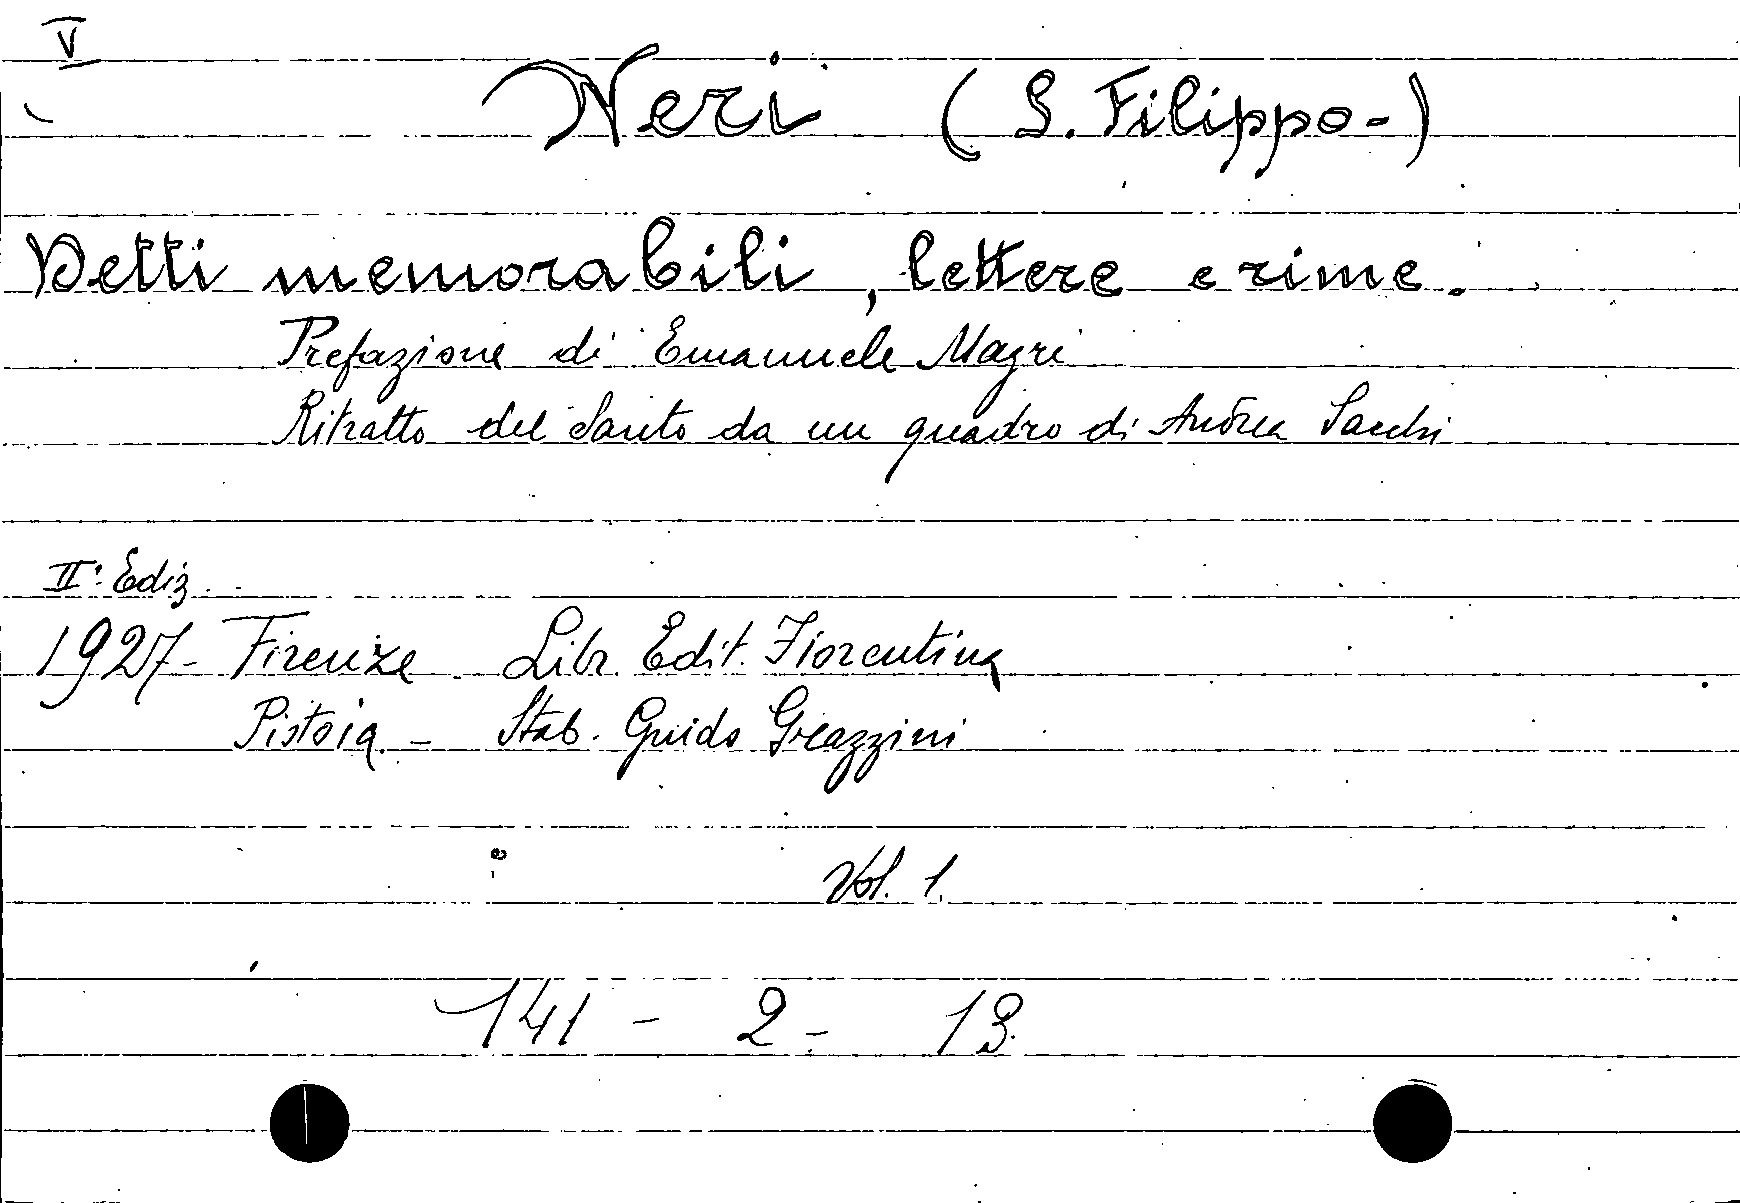 V
Neri ( S. Filippo - )
Detti memorabili, lettere e rime.
Prefazione di Emanuele Magri
Ritratto del Santo da un quadro di Andrea Sacchi
IIª Ediz.
1927 - Firenze Libr. Edit. Fiorentina
Pistoia. - Stab. Guido Grazzini
Vol. 1.
141 - 2 - 13.